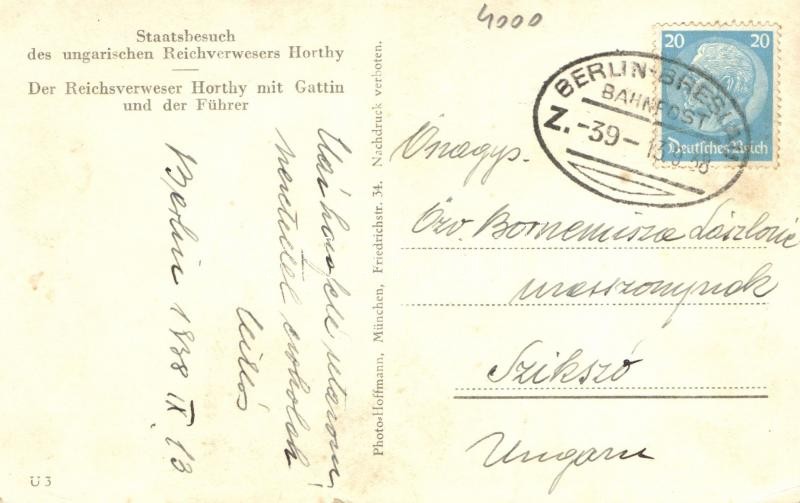 4000
Staatsbesuch
des ungarischen Reichverwesers Horthy
Der Reichsverweser Horthy mit Gattin
und der Führer
Berlin 1938 IX. 13
tisztelettel csókolah
Miklós
U 3
Photo-Hoffmann, München, Friedrichstr. 34. Nachdruck verboten.
20 20
Deutsches Reich
BERLIN-BRESLAU
BAHNPOST
Z. -39- 13.9.38
Önagys.
Özv. Bornemisza Lászlóné
urasszonynak
Szikszó
Ungarn